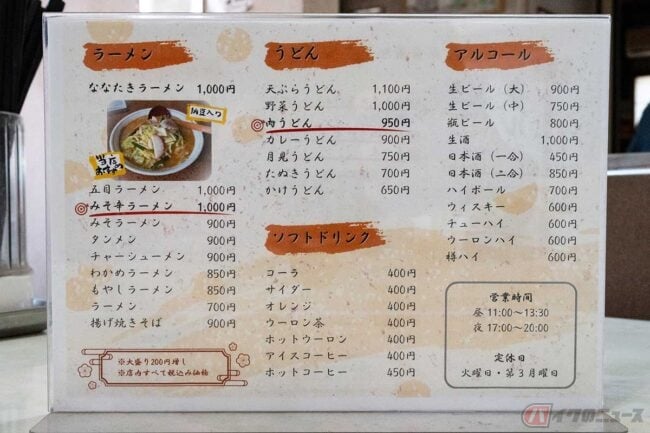 ラーメン
ななたきラーメン 1,000円
納豆入り
当店
おすすめ
五目ラーメン 1,000円
みそ辛ラーメン 1,000円
みそラーメン 900円
タンメン 900円
チャーシューメン 900円
わかめラーメン 850円
もやしラーメン 850円
ラーメン 700円
揚げ焼きそば 900円
※大盛り200円増し
※店内すべて税込み価格
うどん
天ぷらうどん 1,100円
野菜うどん 1,000円
肉うどん 950円
カレーうどん 900円
月見うどん 750円
たぬきうどん 700円
かけうどん 650円
ソフトドリンク
コーラ 400円
サイダー 400円
オレンジ 400円
ウーロン茶 400円
ホットウーロン 400円
アイスコーヒー 400円
ホットコーヒー 450円
アルコール
生ビール（大） 900円
生ビール（中） 750円
瓶ビール 800円
生酒 1,000円
日本酒（一合） 450円
日本酒（二合） 850円
ハイボール 700円
ウィスキー 600円
チューハイ 600円
ウーロンハイ 600円
樽ハイ 600円
営業時間
昼 11:00〜13:30
夜 17:00〜20:00
定休日
火曜日・第３月曜日
バイクのニュース